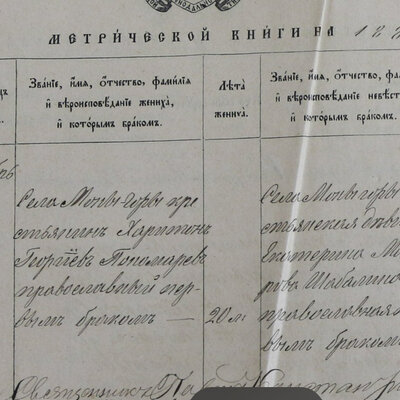 МЕТРИ́ЧЕСКОЙ КНИ́ГИ НА 188
Зва́нїе, и҆́мя, ѻ҆́тчество, фами́лїа
и҆ вѣроисповѣ́данїе жениха̀,
и҆ кото́рымъ бра́комъ.
Лѣ́та
жениха̀.
Зва́нїе, и҆́мя, ѻ҆́тчество, фа
и҆ вѣроисповѣ́данїе невѣст
и҆ кото́рымъ бракомъ.
Села Моквы-горы кре
стьянинъ Харитонъ
Георгіевъ Пономаревъ
православный пер
вымъ бракомъ —
20 л.
Села Моквы-горы
стьянская дѣви
Екатерина М
рова Шабалина
православная
вымъ браком
Священникъ